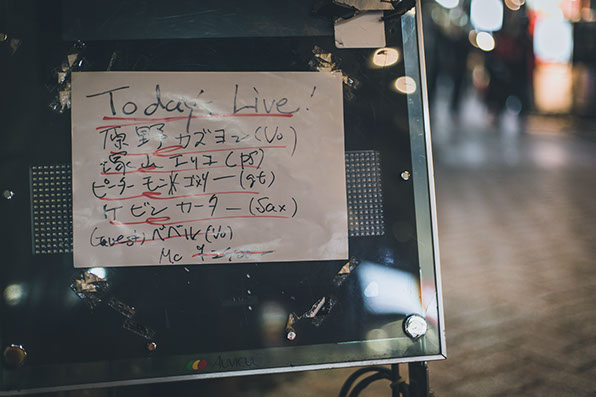 Today's Live!
原野 カズヨシ (Vo)
塚山 エリコ (pf)
ピーター モンゴメリー (gt)
ケビン カーター (Sax)
(Guest) ベベル (Vo)
Mc